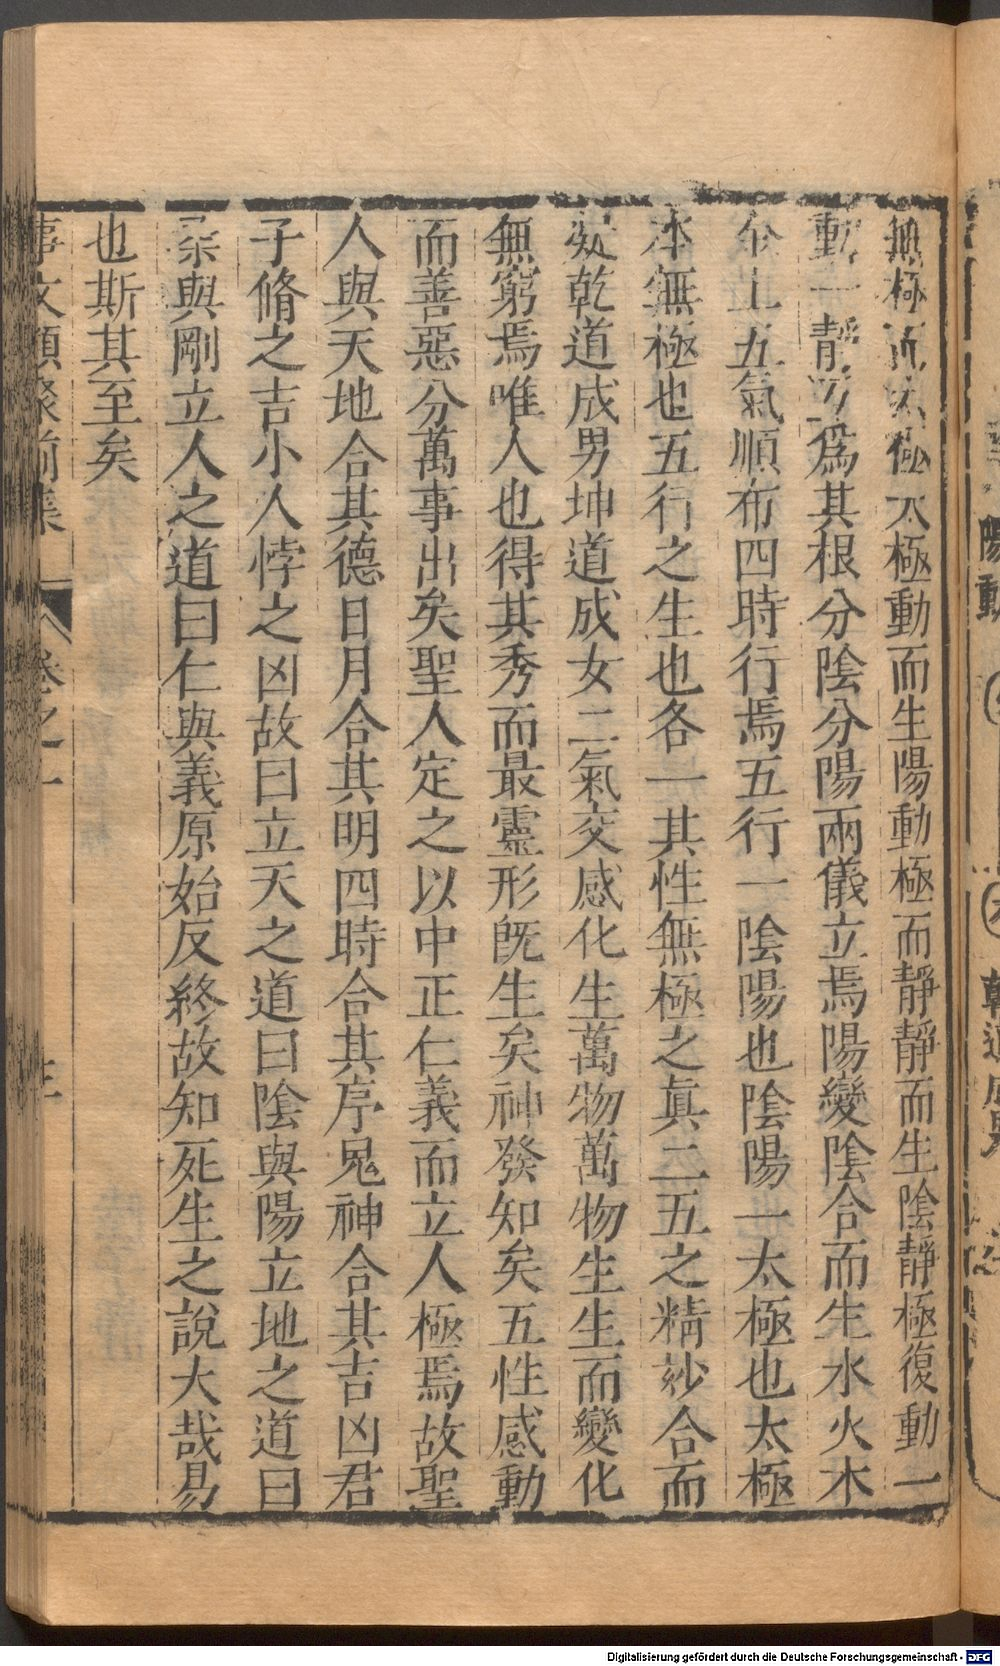 無極而太極太極動而生陽動極而靜靜而生陰靜極復動一
動一靜互爲其根分陰分陽兩儀立焉陽變陰合而生水火木
金土五氣順布四時行焉五行一陰陽也陰陽一太極也太極
本無極也五行之生也各一其性無極之眞二五之精妙合而
凝乾道成男坤道成女二氣交感化生萬物萬物生生而變化
無窮焉唯人也得其秀而最靈形旣生矣神發知矣五性感動
而善惡分萬事出矣聖人定之以中正仁義而立人極焉故聖
人與天地合其德日月合其明四時合其序鬼神合其吉凶君
子脩之吉小人悖之凶故曰立天之道曰陰與陽立地之道曰
柔與剛立人之道曰仁與義原始反終故知死生之說大哉易
也斯其至矣
事文類聚前集 卷之一
陽動
乾道成男
Digitalisierung gefördert durch die Deutsche Forschungsgemeinschaft - DFG